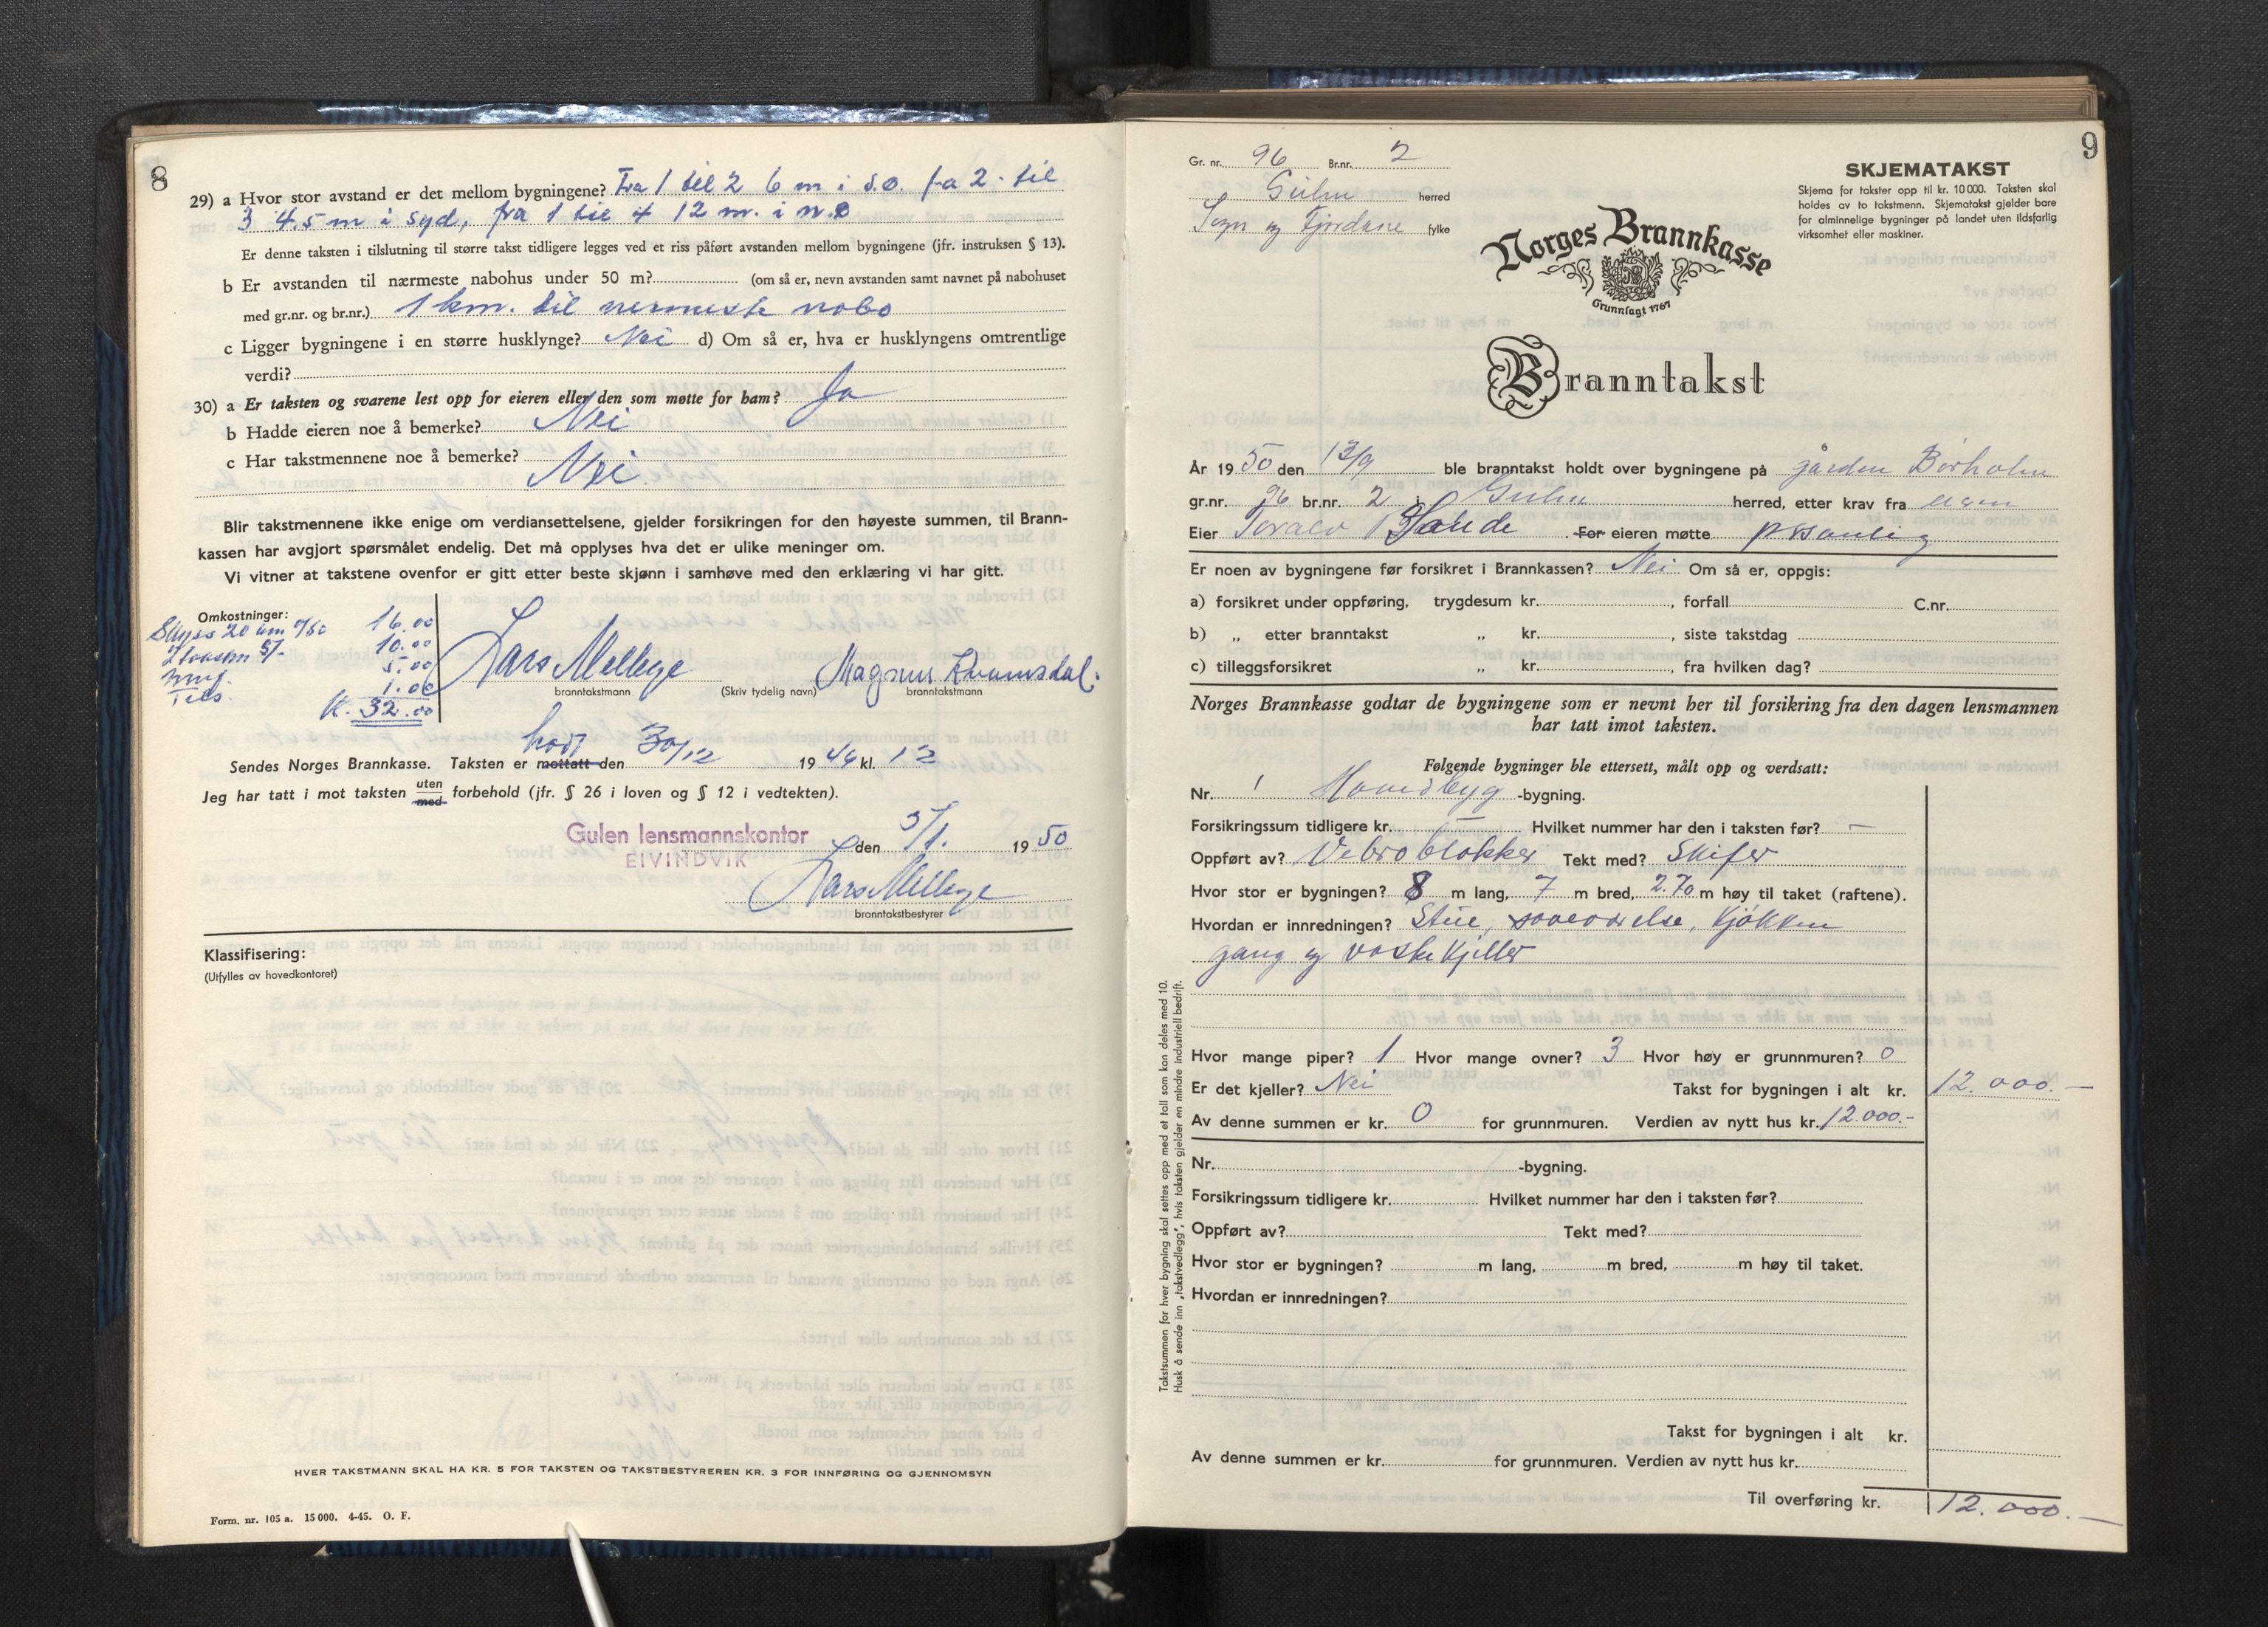 8
29) a Hvor stor avstand er det mellom bygningene? Fra 1 til 2 6 m i s.ø. fra 2 til
3 4.5 m i syd, fra 1 til 4 12 m. i n.ø
Er denne taksten i tilslutning til større takst tidligere legges ved et riss påført avstanden mellom bygningene (jfr. instruksen § 13).
b Er avstanden til nærmeste nabohus under 50 m? (om så er, nevn avstanden samt navnet på nabohuset
med gr.nr. og br.nr.) 1 km. til nermeste nabo
c Ligger bygningene i en større husklynge? Nei d) Om så er, hva er husklyngens omtrentlige
verdi?
30) a Er taksten og svarene lest opp for eieren eller den som møtte for ham? Ja
b Hadde eieren noe å bemerke? Nei
c Har takstmennene noe å bemerke? Nei
Blir takstmennene ikke enige om verdiansettelsene, gjelder forsikringen for den høyeste summen, til Brann-
kassen har avgjort spørsmålet endelig. Det må opplyses hva det er ulike meninger om.
Vi vitner at takstene ovenfor er gitt etter beste skjønn i samhøve med den erklæring vi har gitt.
Omkostninger:
Skyss 20 km 16.00
10.00
5.00
1.00
K. 32.00
Lars Mellege Magnus Kvamsdal.
branntakstmann (Skriv tydelig navn) branntakstmann
Sendes Norges Brannkasse. Taksten er mottatt den 30/12 1949 kl. 12
Jeg har tatt i mot taksten uten med forbehold (jfr. § 26 i loven og § 12 i vedtekten).
Gulen lensmannskontor
EIVINDVIK
den 5/1. 1950
Lars Mellege
branntakstbestyrer
Klassifisering:
(Utfylles av hovedkontoret)
HVER TAKSTMANN SKAL HA KR. 5 FOR TAKSTEN OG TAKSTBESTYREREN KR. 3 FOR INNFØRING OG GJENNOMSYN
Form. nr. 105 a. 15 000. 4-45. O. F.
9
Gr. nr. 96 Br.nr. 2
Gulen herred
Sogn og Fjordane fylke
SKJEMATAKST
Skjema for takster opp til kr. 10 000. Taksten skal
holdes av to takstmenn. Skjematakst gjelder bare
for alminnelige bygninger på landet uten ildsfarlig
virksomhet eller maskiner.
Norges Brannkasse
Grunnlagt 1767
Branntakst
År 1950 den 13/9 ble branntakst holdt over bygningene på gården Børholm
gr.nr. 96 br.nr. 2 i Gulen herred, etter krav fra eieren
Eier Toralv For eieren møtte personlig
Er noen av bygningene før forsikret i Brannkassen? Nei Om så er, oppgis:
a) forsikret under oppføring, trygdesum kr. , forfall C.nr.
b) „ etter branntakst „ kr. , siste takstdag
c) tilleggsforsikret „ kr. , fra hvilken dag?
Norges Brannkasse godtar de bygningene som er nevnt her til forsikring fra den dagen lensmannen
har tatt imot taksten.
Følgende bygninger ble ettersett, målt opp og verdsatt:
Nr. 1 Hovedbyg -bygning.
Forsikringssum tidligere kr. — Hvilket nummer har den i taksten før? —
Oppført av? Vebro blokker Tekt med? Skifer
Hvor stor er bygningen? 8 m lang, 7 m bred, 2.70 m høy til taket (raftene).
Hvordan er innredningen? Stue, soveværelse, Kjøkken
gang og vaskekjeller
Hvor mange piper? 1 Hvor mange ovner? 3 Hvor høy er grunnmuren? 0
Er det kjeller? Nei Takst for bygningen i alt kr. 12.000.—
Av denne summen er kr. 0 for grunnmuren. Verdien av nytt hus kr. 12.000.-
Nr. -bygning.
Forsikringssum tidligere kr. Hvilket nummer har den i taksten før?
Oppført av? Tekt med?
Hvor stor er bygningen? m lang, m bred, m høy til taket.
Hvordan er innredningen?
Takst for bygningen i alt kr.
Av denne summen er kr. for grunnmuren. Verdien av nytt hus kr.
Til overføring kr. 12.000.—
Takstsummen for hver bygning skal settes opp med et tall som kan deles med 10.
Husk å sende inn „takstvedlegg", hvis taksten gjelder en mindre industriell bedrift.